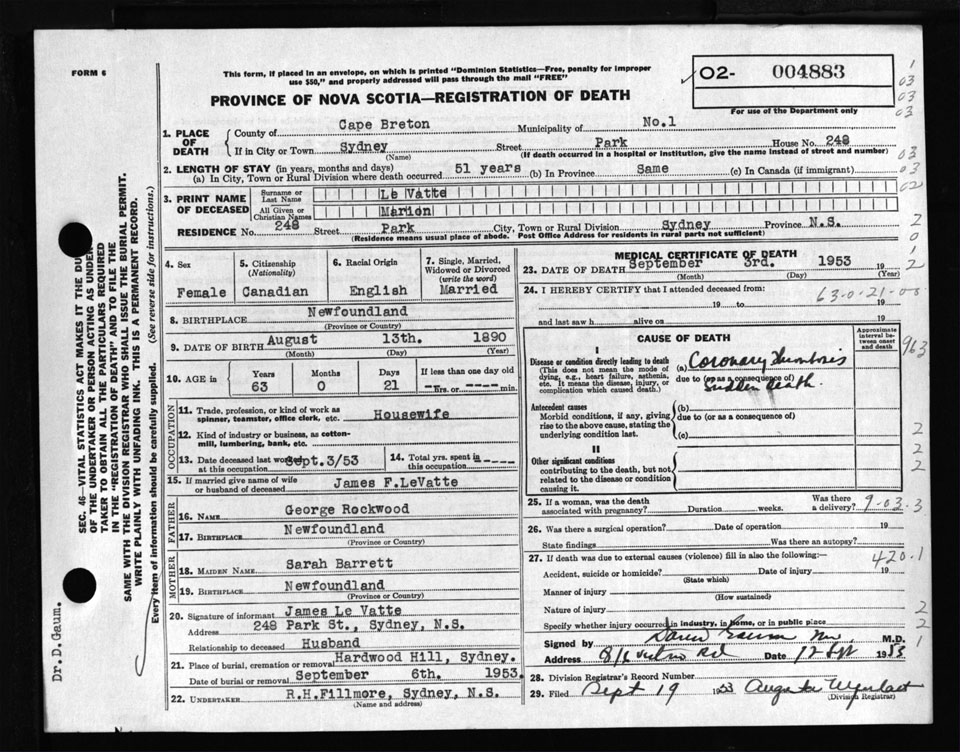 FORM 6
This form, if placed in an envelope, on which is printed "Dominion Statistics—Free, penalty for improper
use $50," and properly addressed will pass through the mail "FREE"
02- 004883
For use of the Department only
PROVINCE OF NOVA SCOTIA—REGISTRATION OF DEATH
1. PLACE OF DEATH
County of Cape Breton Municipality of No.1
If in City or Town Sydney Street Park House No. 248
(Name) (If death occurred in a hospital or institution, give the name instead of street and number)
2. LENGTH OF STAY (in years, months and days)
(a) In City, Town or Rural Division where death occurred 51 years (b) In Province Same (c) In Canada (if immigrant)
3. PRINT NAME OF DECEASED
Surname or Last Name Le Vatte
All Given or Christian Names Marion
RESIDENCE No. 248 Street Park City, Town or Rural Division Sydney Province N.S.
(Residence means usual place of abode. Post Office Address for residents in rural parts not sufficient)
4. Sex
Female
5. Citizenship
(Nationality)
Canadian
6. Racial Origin
English
7. Single, Married,
Widowed or Divorced
(write the word)
Married
8. BIRTHPLACE Newfoundland
(Province or Country)
9. DATE OF BIRTH August 13th. 1890
(Month) (Day) (Year)
10. AGE in
Years Months Days If less than one day old
63 0 21 hrs. or min.
OCCUPATION
11. Trade, profession, or kind of work as
spinner, teamster, office clerk, etc. Housewife
12. Kind of industry or business, as cotton-
mill, lumbering, bank, etc.
13. Date deceased last worked
at this occupation Sept.3/53
14. Total yrs. spent in
this occupation
15. If married give name of wife
or husband of deceased James F.LeVatte
FATHER
16. NAME George Rockwood
17. BIRTHPLACE Newfoundland
(Province or Country)
MOTHER
18. MAIDEN NAME Sarah Barrett
19. BIRTHPLACE Newfoundland
(Province or Country)
20. Signature of informant James Le Vatte
Address 248 Park St., Sydney, N.S.
Relationship to deceased Husband
21. Place of burial, cremation or removal Hardwood Hill, Sydney.
Date of burial or removal September 6th. 1953.
22. UNDERTAKER R.H.Fillmore, Sydney, N.S.
(Name and address)
MEDICAL CERTIFICATE OF DEATH
23. DATE OF DEATH September 3rd. 1953 19
(Month) (Day) (Year)
24. I HEREBY CERTIFY that I attended deceased from:
19 to 19
and last saw h alive on 19
63-0-21-00
CAUSE OF DEATH
Approximate
interval be-
tween onset
and death
I
Disease or condition directly leading to death
(This does not mean the mode of
dying, e.g., heart failure, asthenia,
etc. It means the disease, injury, or
complication which caused death.)
(a) Coronary
due to (or as a consequence of)
Sudden death.
Antecedent causes
Morbid conditions, if any, giving
rise to the above cause, stating the
underlying condition last.
(b)
due to (or as a consequence of)
(c)
II
Other significant conditions
contributing to the death, but not
related to the disease or condition
causing it.
25. If a woman, was the death
associated with pregnancy? Duration weeks. Was there
a delivery?
9-03-3
26. Was there a surgical operation? Date of operation 19
State findings Was there an autopsy?
27. If death was due to external causes (violence) fill in also the following:—
420.1
Accident, suicide or homicide? Date of injury 19
(State which)
Manner of injury
(How sustained)
Nature of injury
Specify whether injury occurred in industry, in home, or in public place
Signed by M.D.
Address Date 12 Sept 1953
28. Division Registrar's Record Number
29. Filed Sept 19 1953
(Division Registrar)
1
03
03
03
03
03
02
2
0
1
2
963
2
2
2
2
2
1
SEC. 46—VITAL STATISTICS ACT MAKES IT THE DUTY
OF THE UNDERTAKER OR PERSON ACTING AS UNDER-
TAKER TO OBTAIN ALL THE PARTICULARS REQUIRED
IN THE "REGISTRATION OF DEATH" AND TO FILE THE
SAME WITH THE DIVISION REGISTRAR WHO SHALL ISSUE THE BURIAL PERMIT.
WRITE PLAINLY WITH UNFADING INK. THIS IS A PERMANENT RECORD.
Every item of information should be carefully supplied. (See reverse side for instructions.)
Dr.D.Gaum.